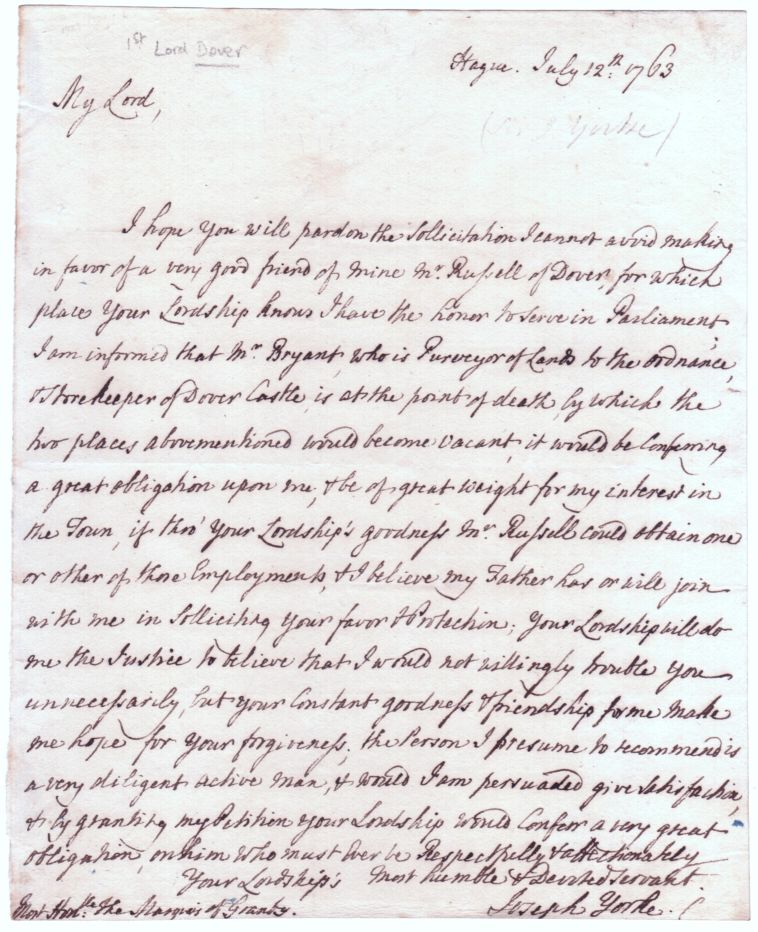 1st Lord Dover
Hague. July 12th: 1763
My Lord,
(Sir J Yorke)
I hope You will pardon the Sollicitation I cannot avoid making
in favor of a very good friend of mine Mr. Russell of Dover, for which
place Your Lordship knows I have the honor to serve in Parliament;
I am informed that Mr. Bryant, who is Purveyor of Lands to the Ordnance,
& Storekeeper of Dover Castle, is at the point of death, by which the
two places abovementioned would become vacant, it would be Conferring
a great obligation upon me, & be of great weight for my interest in
the Town, if thro' Your Lordship's goodness Mr. Russell could obtain one
or other of those Employments, & I believe my Father has or will join
with me in Solliciting Your favor & Protection; Your Lordship will do
me the Justice to believe that I would not willingly trouble You
unnecessarily, but Your Constant goodness & friendship for me make
me hope for Your forgiveness; the Person I presume to recommend is
a very diligent active Man, & would I am persuaded give Satisfaction,
& by granting my Petition Your Lordship would Conferr a very great
obligation, on him who must Ever be Respectfully & affectionately
Your Lordship's Most humble & Devoted Servant.
Most Honble. The Marquis of Granby. Joseph Yorke.